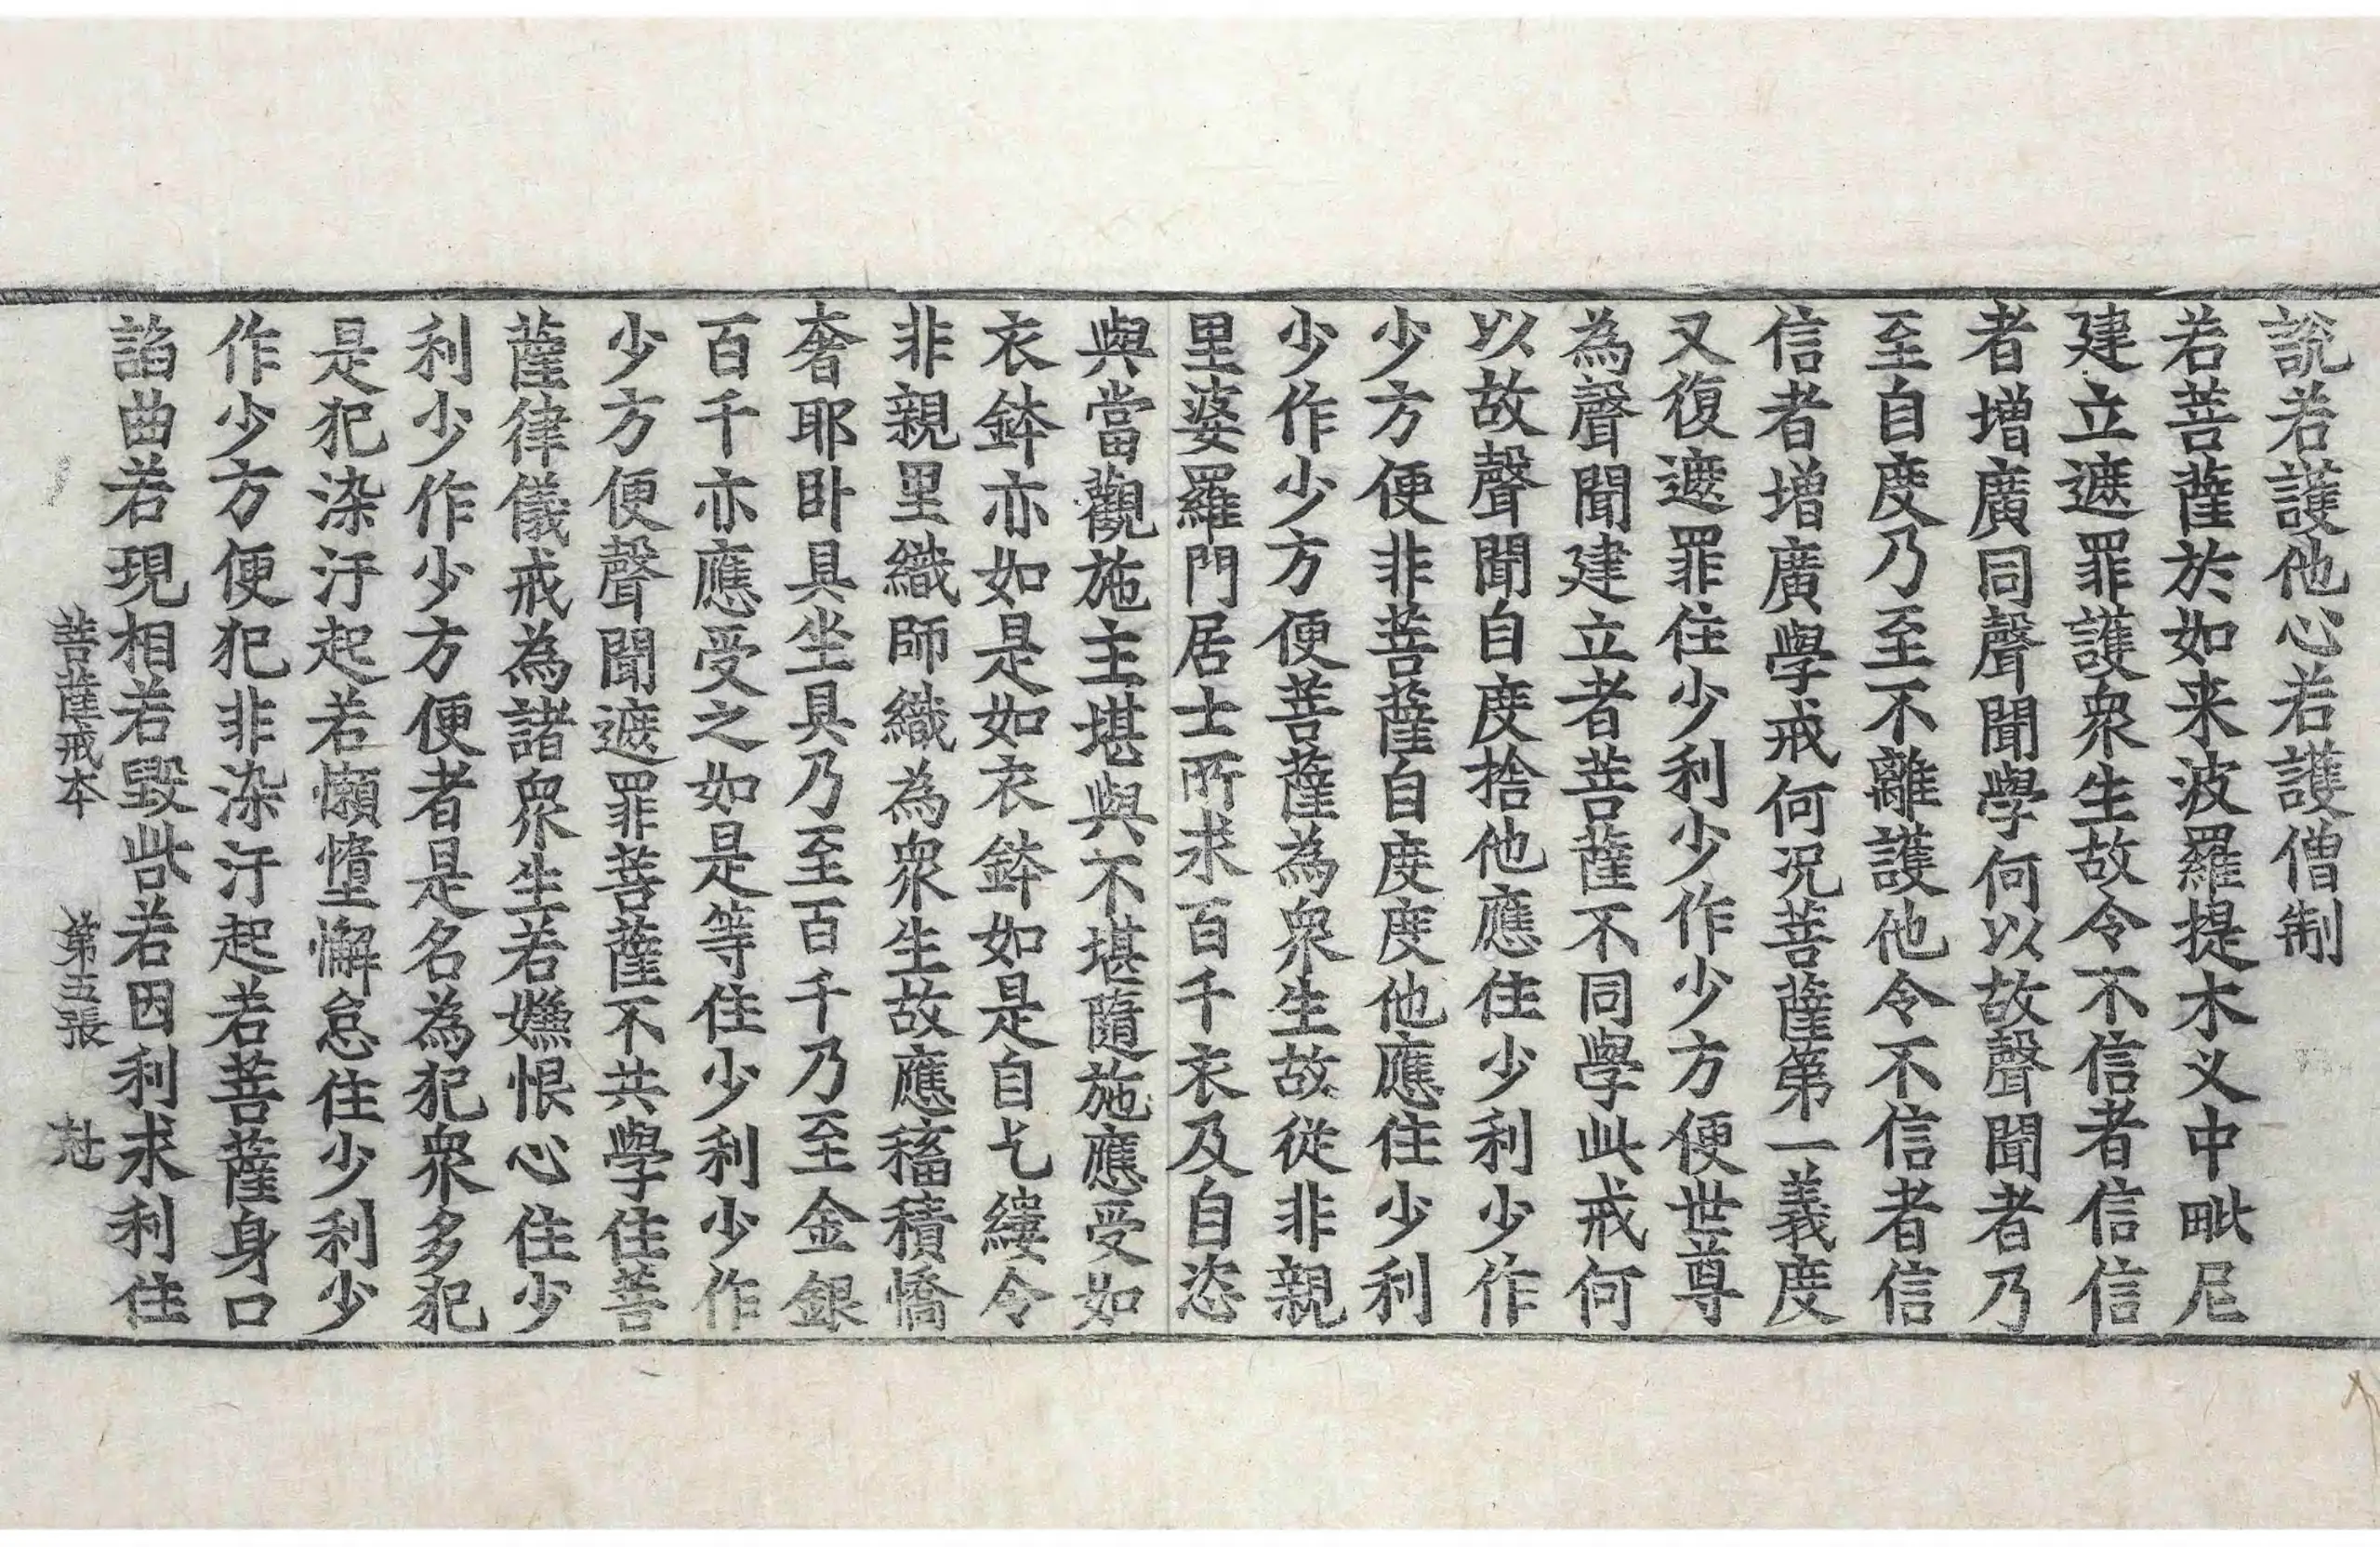 說若護他心若護僧制
若菩薩於如来波羅提木义中毗尼
建立遮罪護衆生故令不信者信信
者增廣同聲聞學何以故聲聞者乃
至自度乃至不離護他令不信者信
信者增廣學戒何况菩薩第一義度
又復遮罪住少利少作少方便世尊
為聲聞建立者菩薩不同學此戒何
以故聲聞自度捨他應住少利少作
少方便非菩薩自度度他應住少利
少作少方便菩薩為衆生故從非親
里婆羅門居士所求百千衣及自恣
與當觀施主堪與不堪隨施應受如
衣鉢亦如是如衣鉢如是自乞縷令
非親里織師織為衆生故應稸積憍
奢耶卧具坐具乃至百千乃至金銀
百千亦應受之如是等住少利少作
少方便聲聞遮罪菩薩不共學住菩
薩律儀戒為諸衆生若嫌恨心住少
利少作少方便者是名為犯衆多犯
是犯染汙起若懶墮懈怠住少利少
作少方便犯非染汙起若菩薩身口
諂曲若現相若毀呰若因利求利住
菩薩戒本 第五張